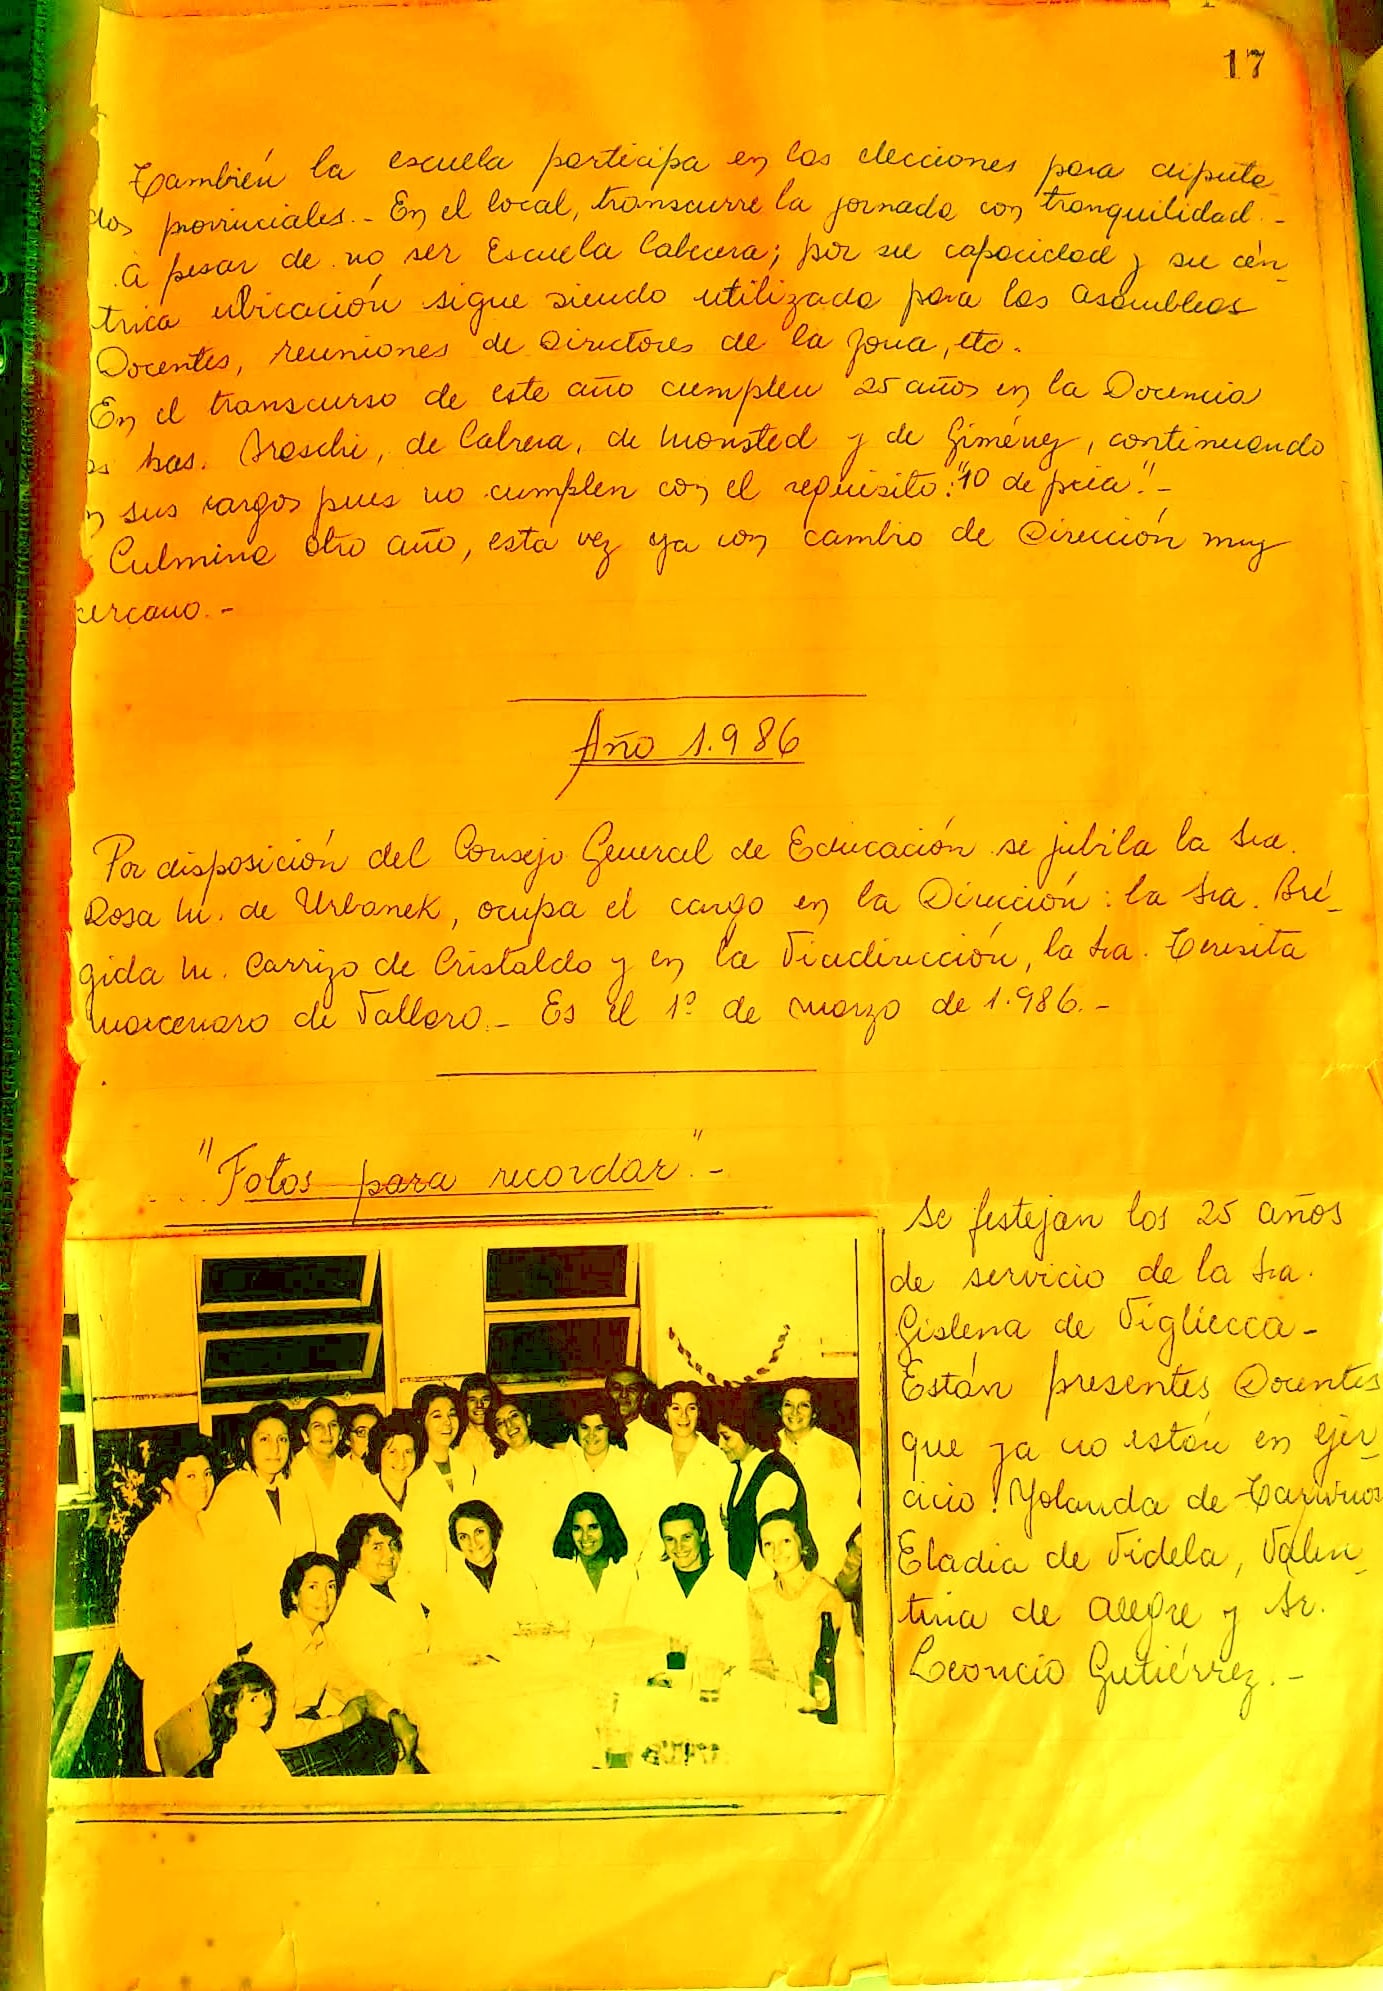 17
También la escuela participa en las elecciones para diputa-
dos provinciales.- En el local, transcurre la jornada con tranquilidad.-
A pesar de no ser Escuela Cabecera; por su capacidad y su cén-
trica ubicación sigue siendo utilizada para las Asambleas
Docentes, reuniones de Directores de la zona, etc.
En el transcurso de este año cumplen 25 años en la Docencia
as Sras. Braschi, de Cabrera, de Monsted y de Giménez, continuando
n sus cargos pues no cumplen con el requisito: "10 de pcia".-
Culmina otro año, esta vez ya con cambio de Dirección muy
cercano.-
Año 1.986
Por disposición del Consejo General de Educación se jubila la Sra.
Rosa M. de Urbanek, ocupa el cargo en la Dirección: la Sra. Bré-
gida M. Carrizo de Cristaldo y en la Vicedirección, la Sra. Teresita
Marcenaro de Vallaro.- Es el 1º de marzo de 1.986.-
"Fotos para recordar".-
Se festejan los 25 años
de servicio de la Sra.
Gislena de Vigliecca-
Están presentes Docentes
que ya no están en ejer-
cicio: Yolanda de
Eladia de Videla, Valen-
tina de Alegre y Sr.
Leoncio Gutiérrez.-